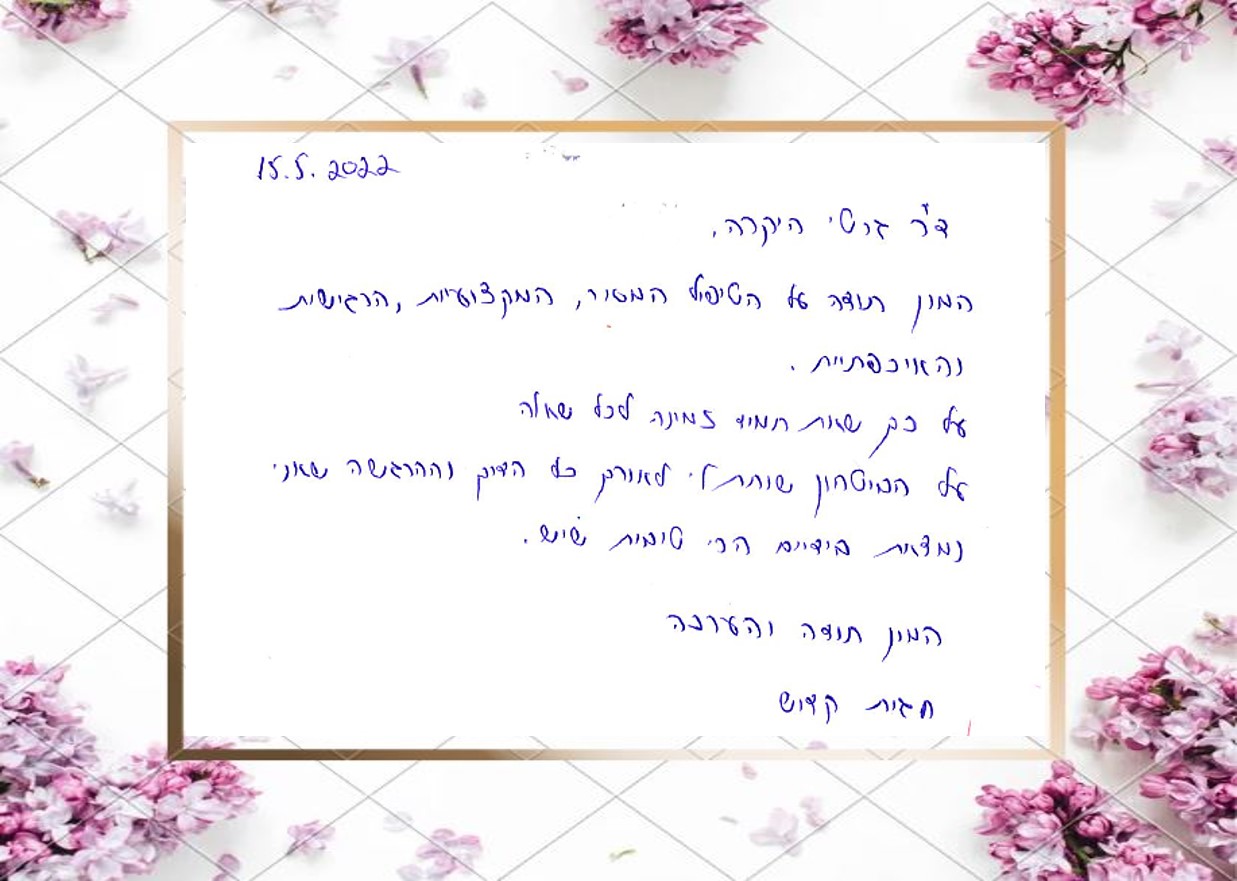 15.5.2022
ד"ר גרשי היקרה,
המון תודה על הטיפול המסור, המקצועיות, הרגישות
והאיכפתיות.
על כך שאת תמיד זמינה לכל שאלה
על הביטחון שנתת לי לאורך כל הדרך וההרגשה שאני
נמצאת בידיים הכי טובות שיש.
המון תודה והערכה
חגית קדוש